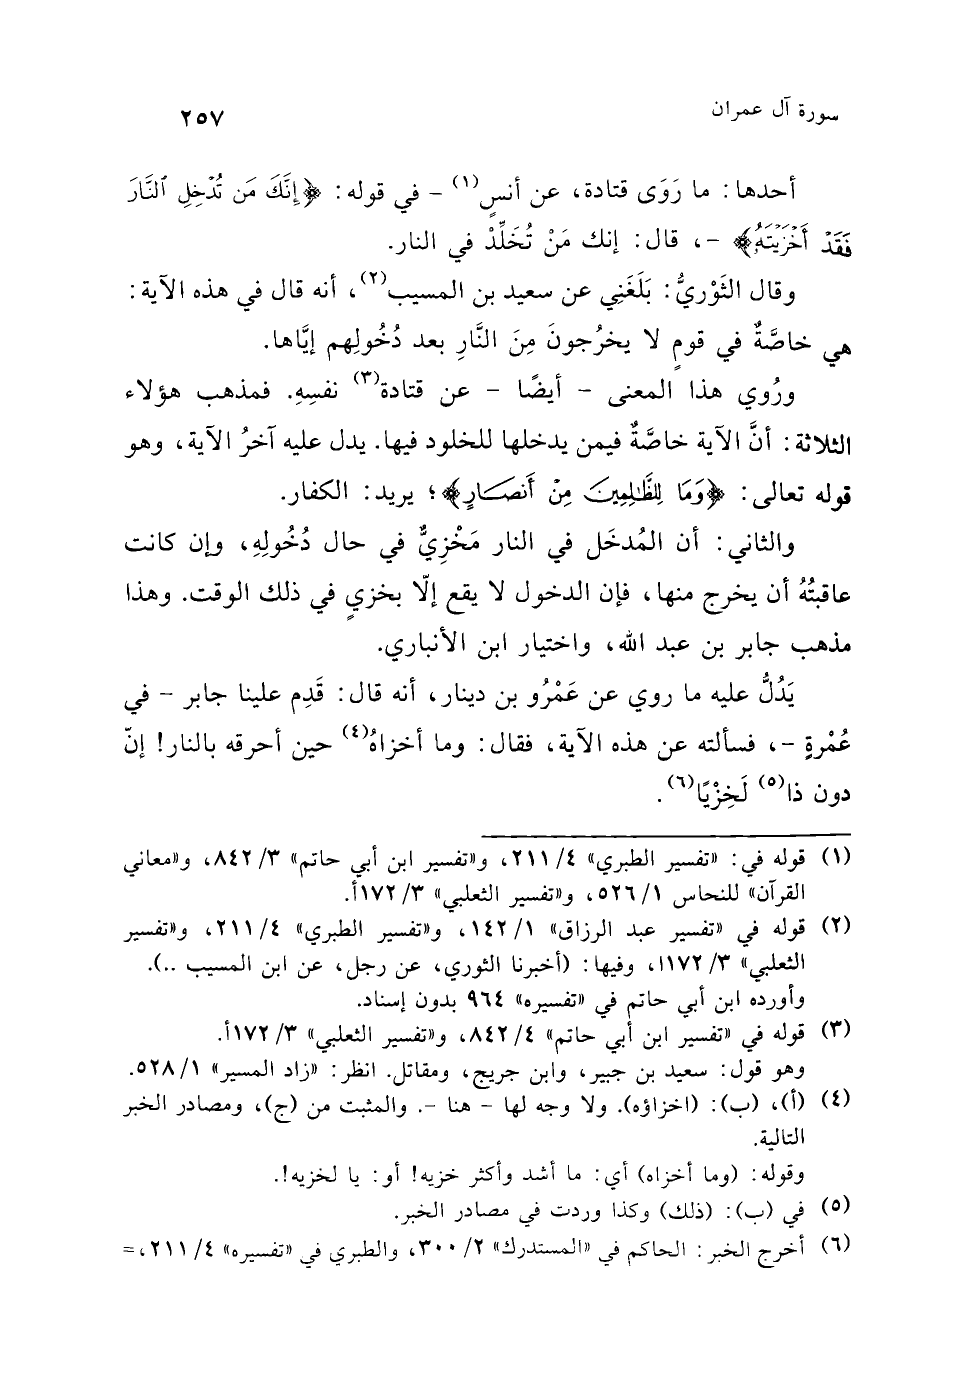 سورة آل عمران
٢٥٧
أحدها: ما رَوَى قتادة، عن أنسٍ(١) - في قوله: ﴿إِنَّكَ مَن تُدْخِلِ ٱلنَّارَ
فَقَدْ أَخْزَيْتَهُۥ﴾ -، قال: إنك مَنْ تُخَلِّدْ في النار.
وقال الثَوْريُّ: بَلَغَنِي عن سعيد بن المسيب(٢)، أنه قال في هذه الآية:
هي خاصَّةٌ في قومٍ لا يخرُجونَ مِنَ النَّارِ بعد دُخُولِهم إيَّاها.
ورُوي هذا المعنى - أيضًا - عن قتادة(٣) نفسِهِ. فمذهب هؤلاء
الثلاثة: أنَّ الآية خاصَّةٌ فيمن يدخلها للخلود فيها. يدل عليه آخرُ الآية، وهو
قوله تعالى: ﴿وَمَا لِلظَّٰلِمِينَ مِنْ أَنصَارٍ﴾؛ يريد: الكفار.
والثاني: أن المُدخَل في النار مَخْزِيٌّ في حال دُخُولِهِ، وإن كانت
عاقبتُهُ أن يخرج منها، فإن الدخول لا يقع إلّا بخزيٍ في ذلك الوقت. وهذا
مذهب جابر بن عبد الله، واختيار ابن الأنباري.
يَدُلُّ عليه ما روي عن عَمْرُو بن دينار، أنه قال: قَدِم علينا جابر - في
عُمْرةٍ -، فسألته عن هذه الآية، فقال: وما أخزاهُ(٤) حين أحرقه بالنار! إنّ
دون ذا(٥) لَخِزْيًا(٦).
(١) قوله في: «تفسير الطبري» ٤/ ٢١١، و«تفسير ابن أبي حاتم» ٣/ ٨٤٢، و«معاني
القرآن» للنحاس ١/ ٥٢٦، و«تفسير الثعلبي» ٣/ ١٧٢أ.
(٢) قوله في «تفسير عبد الرزاق» ١/ ١٤٢، و«تفسير الطبري» ٤/ ٢١١، و«تفسير
الثعلبي» ٣/ ١٧٢ا، وفيها: (أخبرنا الثوري، عن رجل، عن ابن المسيب ..).
وأورده ابن أبي حاتم في «تفسيره» ٩٦٤ بدون إسناد.
(٣) قوله في «تفسير ابن أبي حاتم» ٤/ ٨٤٢، و«تفسير الثعلبي» ٣/ ١٧٢أ.
وهو قول: سعيد بن جبير، وابن جريج، ومقاتل. انظر: «زاد المسير» ١/ ٥٢٨.
(٤) (أ)، (ب): (اخزاؤه). ولا وجه لها - هنا -. والمثبت من (ج)، ومصادر الخبر
التالية.
وقوله: (وما أخزاه) أي: ما أشد وأكثر خزيه! أو: يا لخزيه!.
(٥) في (ب): (ذلك) وكذا وردت في مصادر الخبر.
(٦) أخرج الخبر: الحاكم في «المستدرك» ٢/ ٣٠٠، والطبري في «تفسيره» ٤/ ٢١١، =